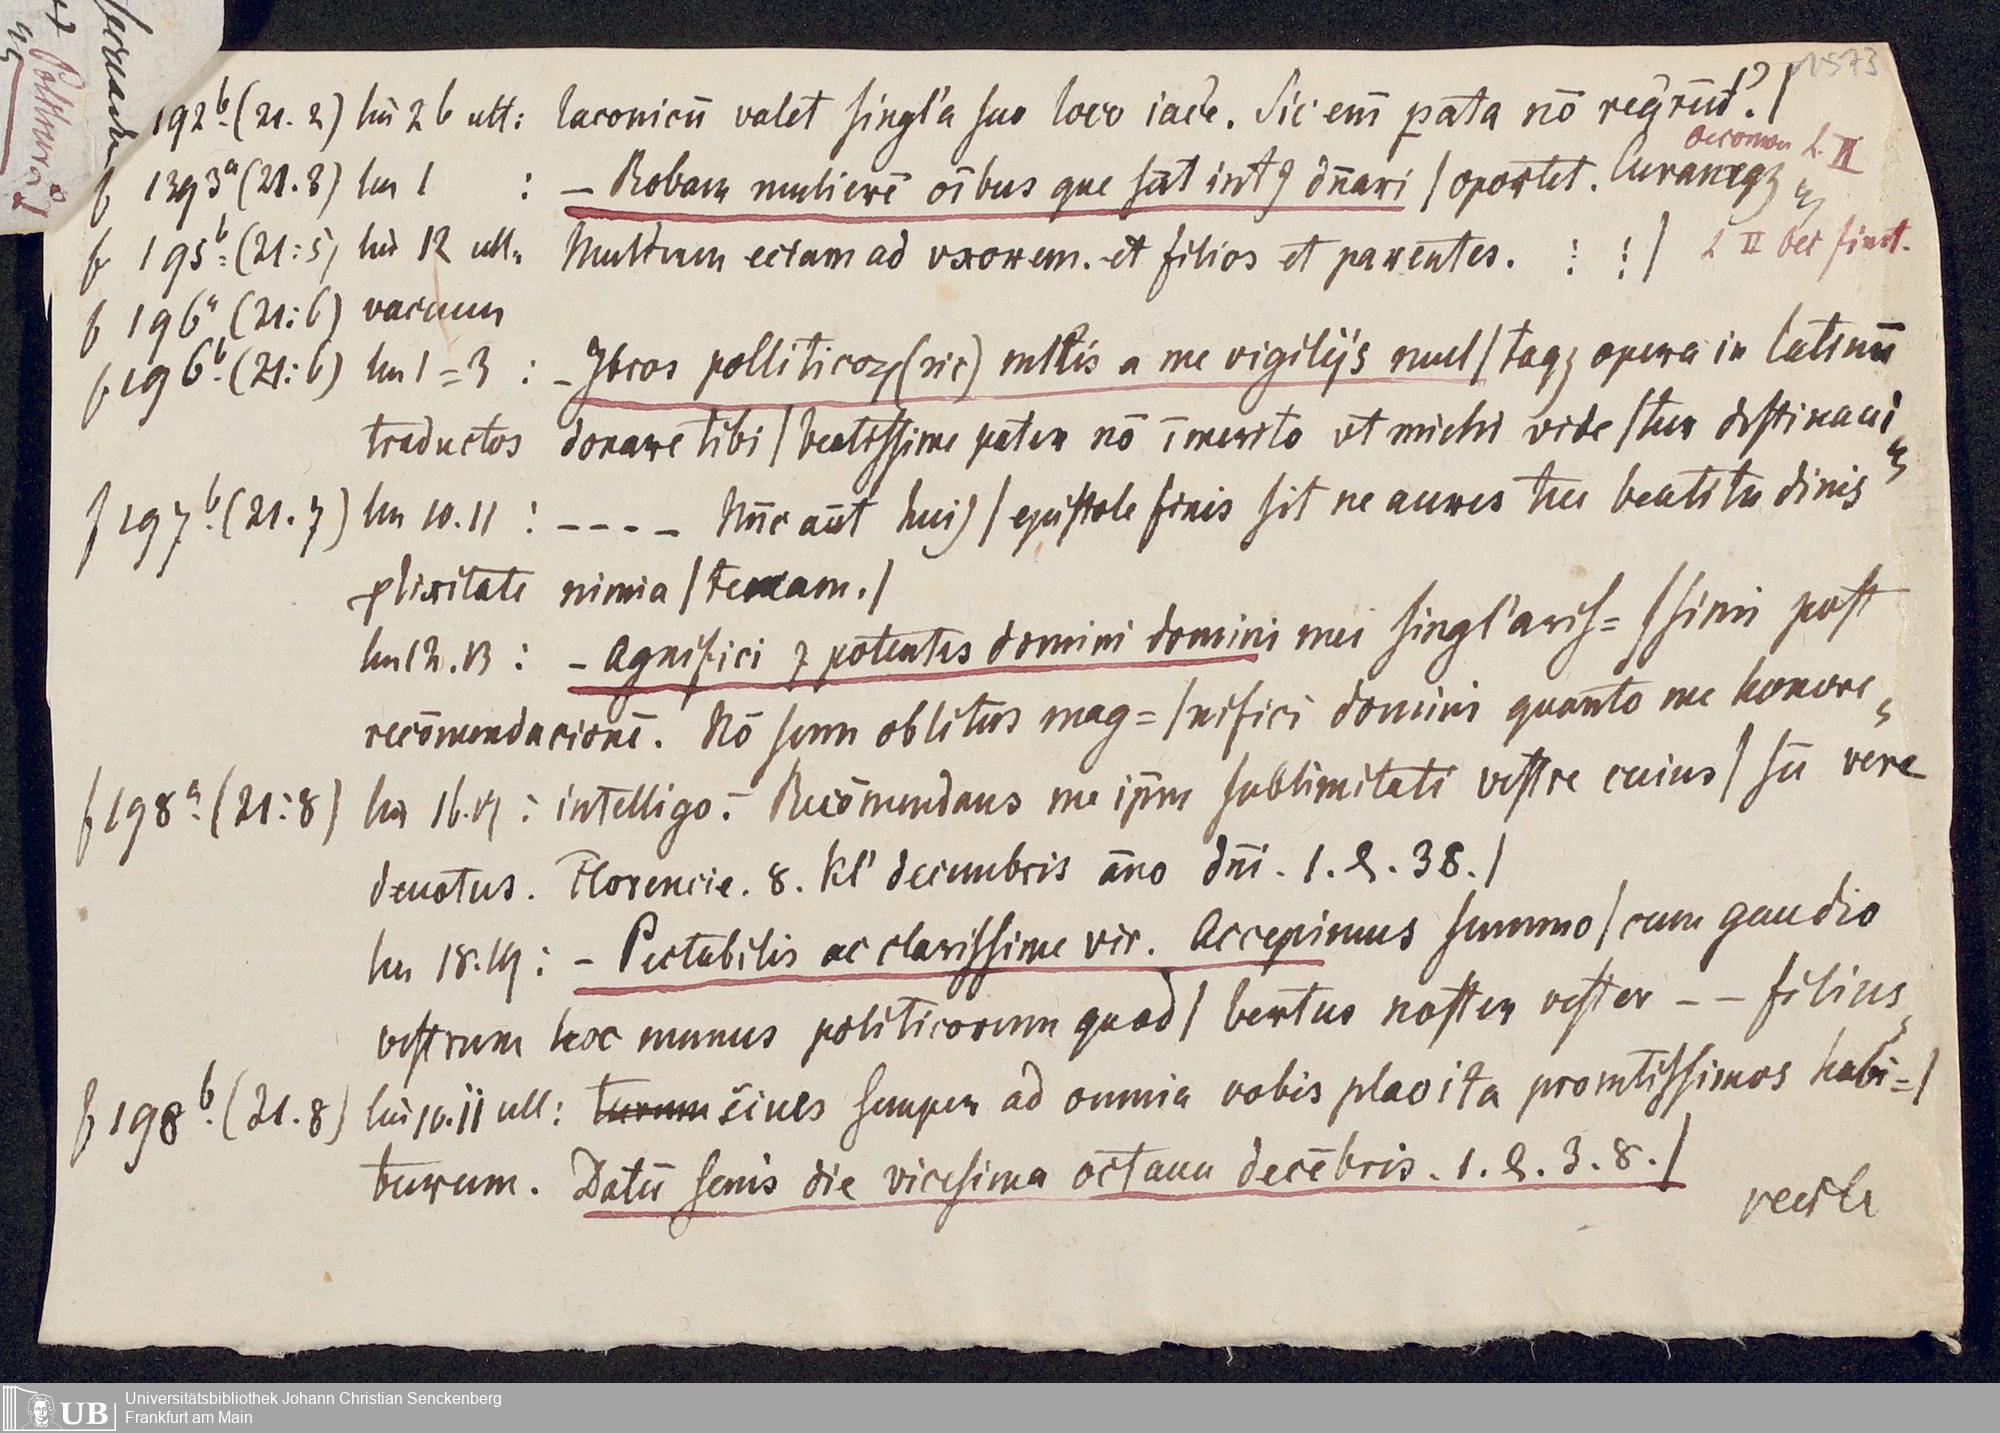 N573
192b. (21. 2) lin 2 b ult: laconicū valet singl'a suo loco iacē. Sic em̄ pata nō regrūd'?/
oeconom L. II
f 193a (21.3) lin 1 : – Robam mulierē oībus que sūt int9 dn̄ari / oportet. Curamqz
f 195b. (21:5) lin 12 ult. Multum eciam ad vxorem. et filios et parentes. : : /
L II oec finit.
f 196a (21:6) vacuum
f 196b. (21:6) lin 1=3 : – Ibros polliticoꝝ (sic) mltis a me vigilijs mul/taqz opera in latinū
traductos donare tibi / beatissime pater nō īmerito vt michi vide/tur destinaui
f 197b. (21.7) lin 10.11 : – – – – Nūc aūt hui9 / epistole finis sit ne aures tue beatitudinis
plixitate nimia / teneam./
lin 12.13 : – Agnifici et potentes domini domini mei singl'aris= /simi post
recōmendacionē. Nō sum oblitus mag= /nifici domini quanto me honore
f 198a (21:8) lin 16.17 : intelligo. – Recōmendans me ip̄m sublimitati vestre cuius / sū vere
deuotus. Florencie. 8. kl' decembris āno dn̄i. 1. 2. 38./
lin 18.19 : – Pectabilis ac clarissime vir. Accepimus summo / cum gaudio
vestrum hoc munus politicorum quod / bertus noster vester – – filius
f 198b. (21.8) lin 10.11 ult: turum ciues semper ad omnia vobis placita promtissimos habi=/
turum. Datū senis die vicesima octaua decēbris. 1. 2. 3. 8./